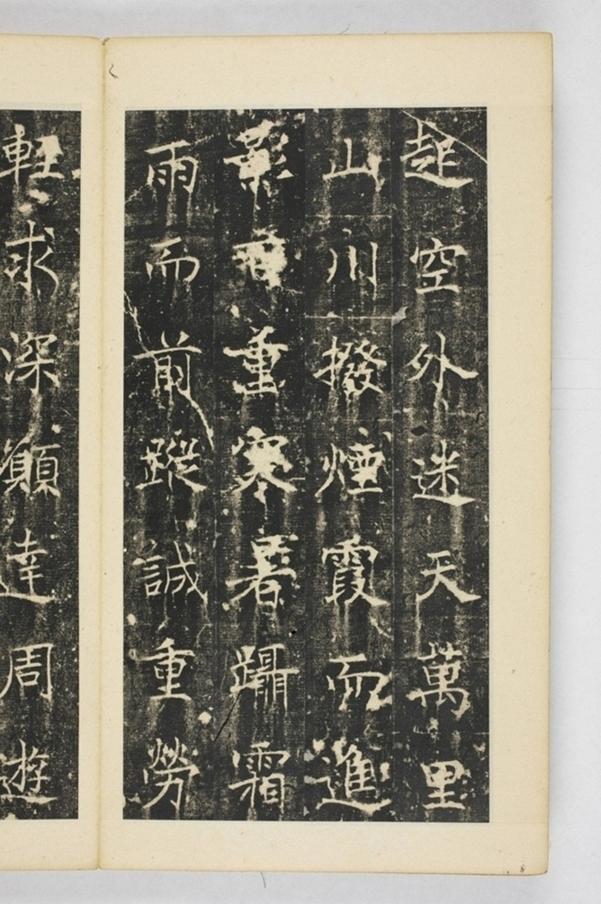 起空外迷天萬里
山川撥煙霞而進
影百重寒暑躡霜
雨而前蹤誠重勞
輕求深願達周遊